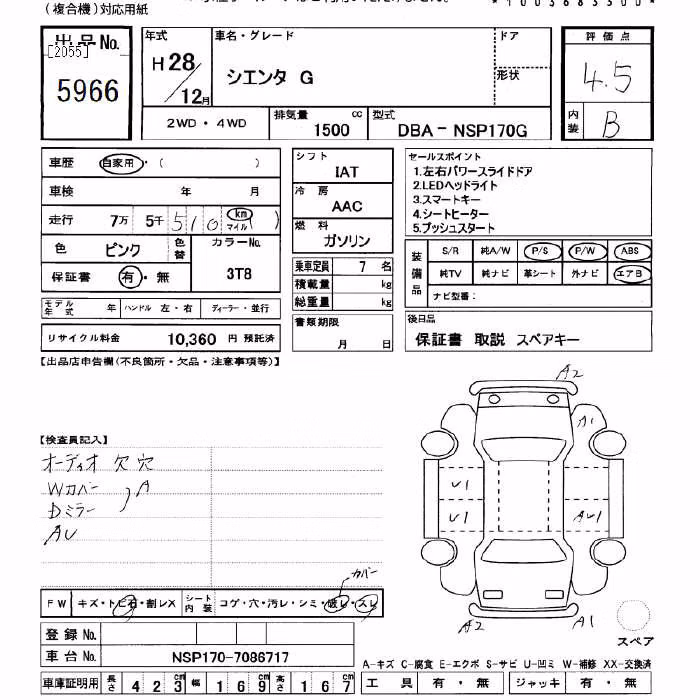 (複合機)対応用紙
*1003683500*
出品No.
[2055]
5966
年式
H28/12月
車名・グレード
シエンタ G
ドア
形状
2WD・4WD
排気量
1500 cc
型式
DBA-NSP170G
評価点
4.5
内装
B
車歴 自家用・( )
車検 年 月
走行 7万 5千 510 km マイル
色 ピンク 色替 カラーNo. 3T8
保証書 有・無
モデル年式 年 ハンドル 左・右 ディーラー・並行
リサイクル料金 10,360 円 預託済
シフト
IAT
冷房
AAC
燃料
ガソリン
乗車定員 7 名
積載量 kg
総重量 kg
書類期限
月 日
セールスポイント
1.左右パワースライドドア
2.LEDヘッドライト
3.スマートキー
4.シートヒーター
5.プッシュスタート
装備品
S/R 純A/W P/S P/W ABS
純TV 純ナビ 革シート 外ナビ エアB
ナビ型番：
後日品
保証書 取説 スペアキー
【出品店申告欄(不良箇所・欠品・注意事項等)】
【検査員記入】
オーディオ 欠 穴
Wカバー
Dミラー
A
AU
カバー
FW キズ・トビ石・割レX シート内装 コゲ・穴・汚レ・シミ・破レ・スレ
登録No.
車台No. NSP170-7086717
車庫証明用 長さ 423cm 幅 169cm 高さ 167cm
A2
A1
U1
U1
AU1
A2
A1
スペア
A-キズ C-腐食 E-エクボ S-サビ U-凹ミ W-補修 XX-交換済
工具 有・無 ジャッキ 有・無